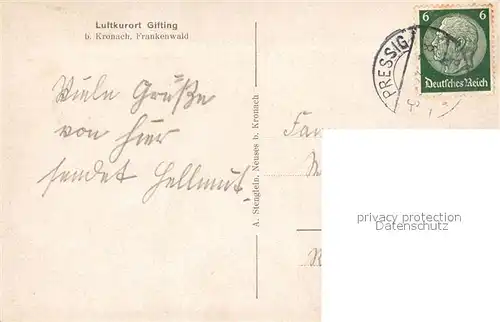 Luftkurort Gifting
b. Kronach, Frankenwald
Viele Grüße
von hier
sendet Hellmut.
A. Stenglein, Neuses b. Kronach
PRESSIG
6 6
Deutsches Reich
Fam
privacy protection
DatenSchutz